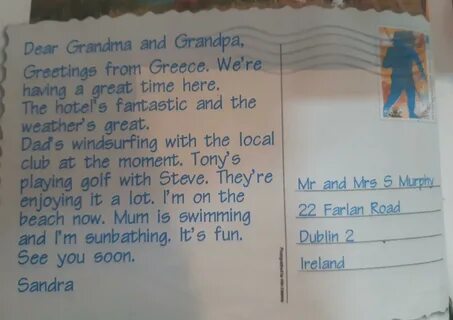 Dear Grandma and Grandpa,
Greetings from Greece. We're
having a great time here.
The hotel's fantastic and the
weather's great.
Dad's windsurfing with the local
club at the moment. Tony's
playing golf with Steve. They're
enjoying it a lot. I'm on the
beach now. Mum is swimming
and I'm sunbathing. It's fun.
See you soon.
Sandra
Mr and Mrs S Murphy
22 Farlan Road
Dublin 2
Ireland